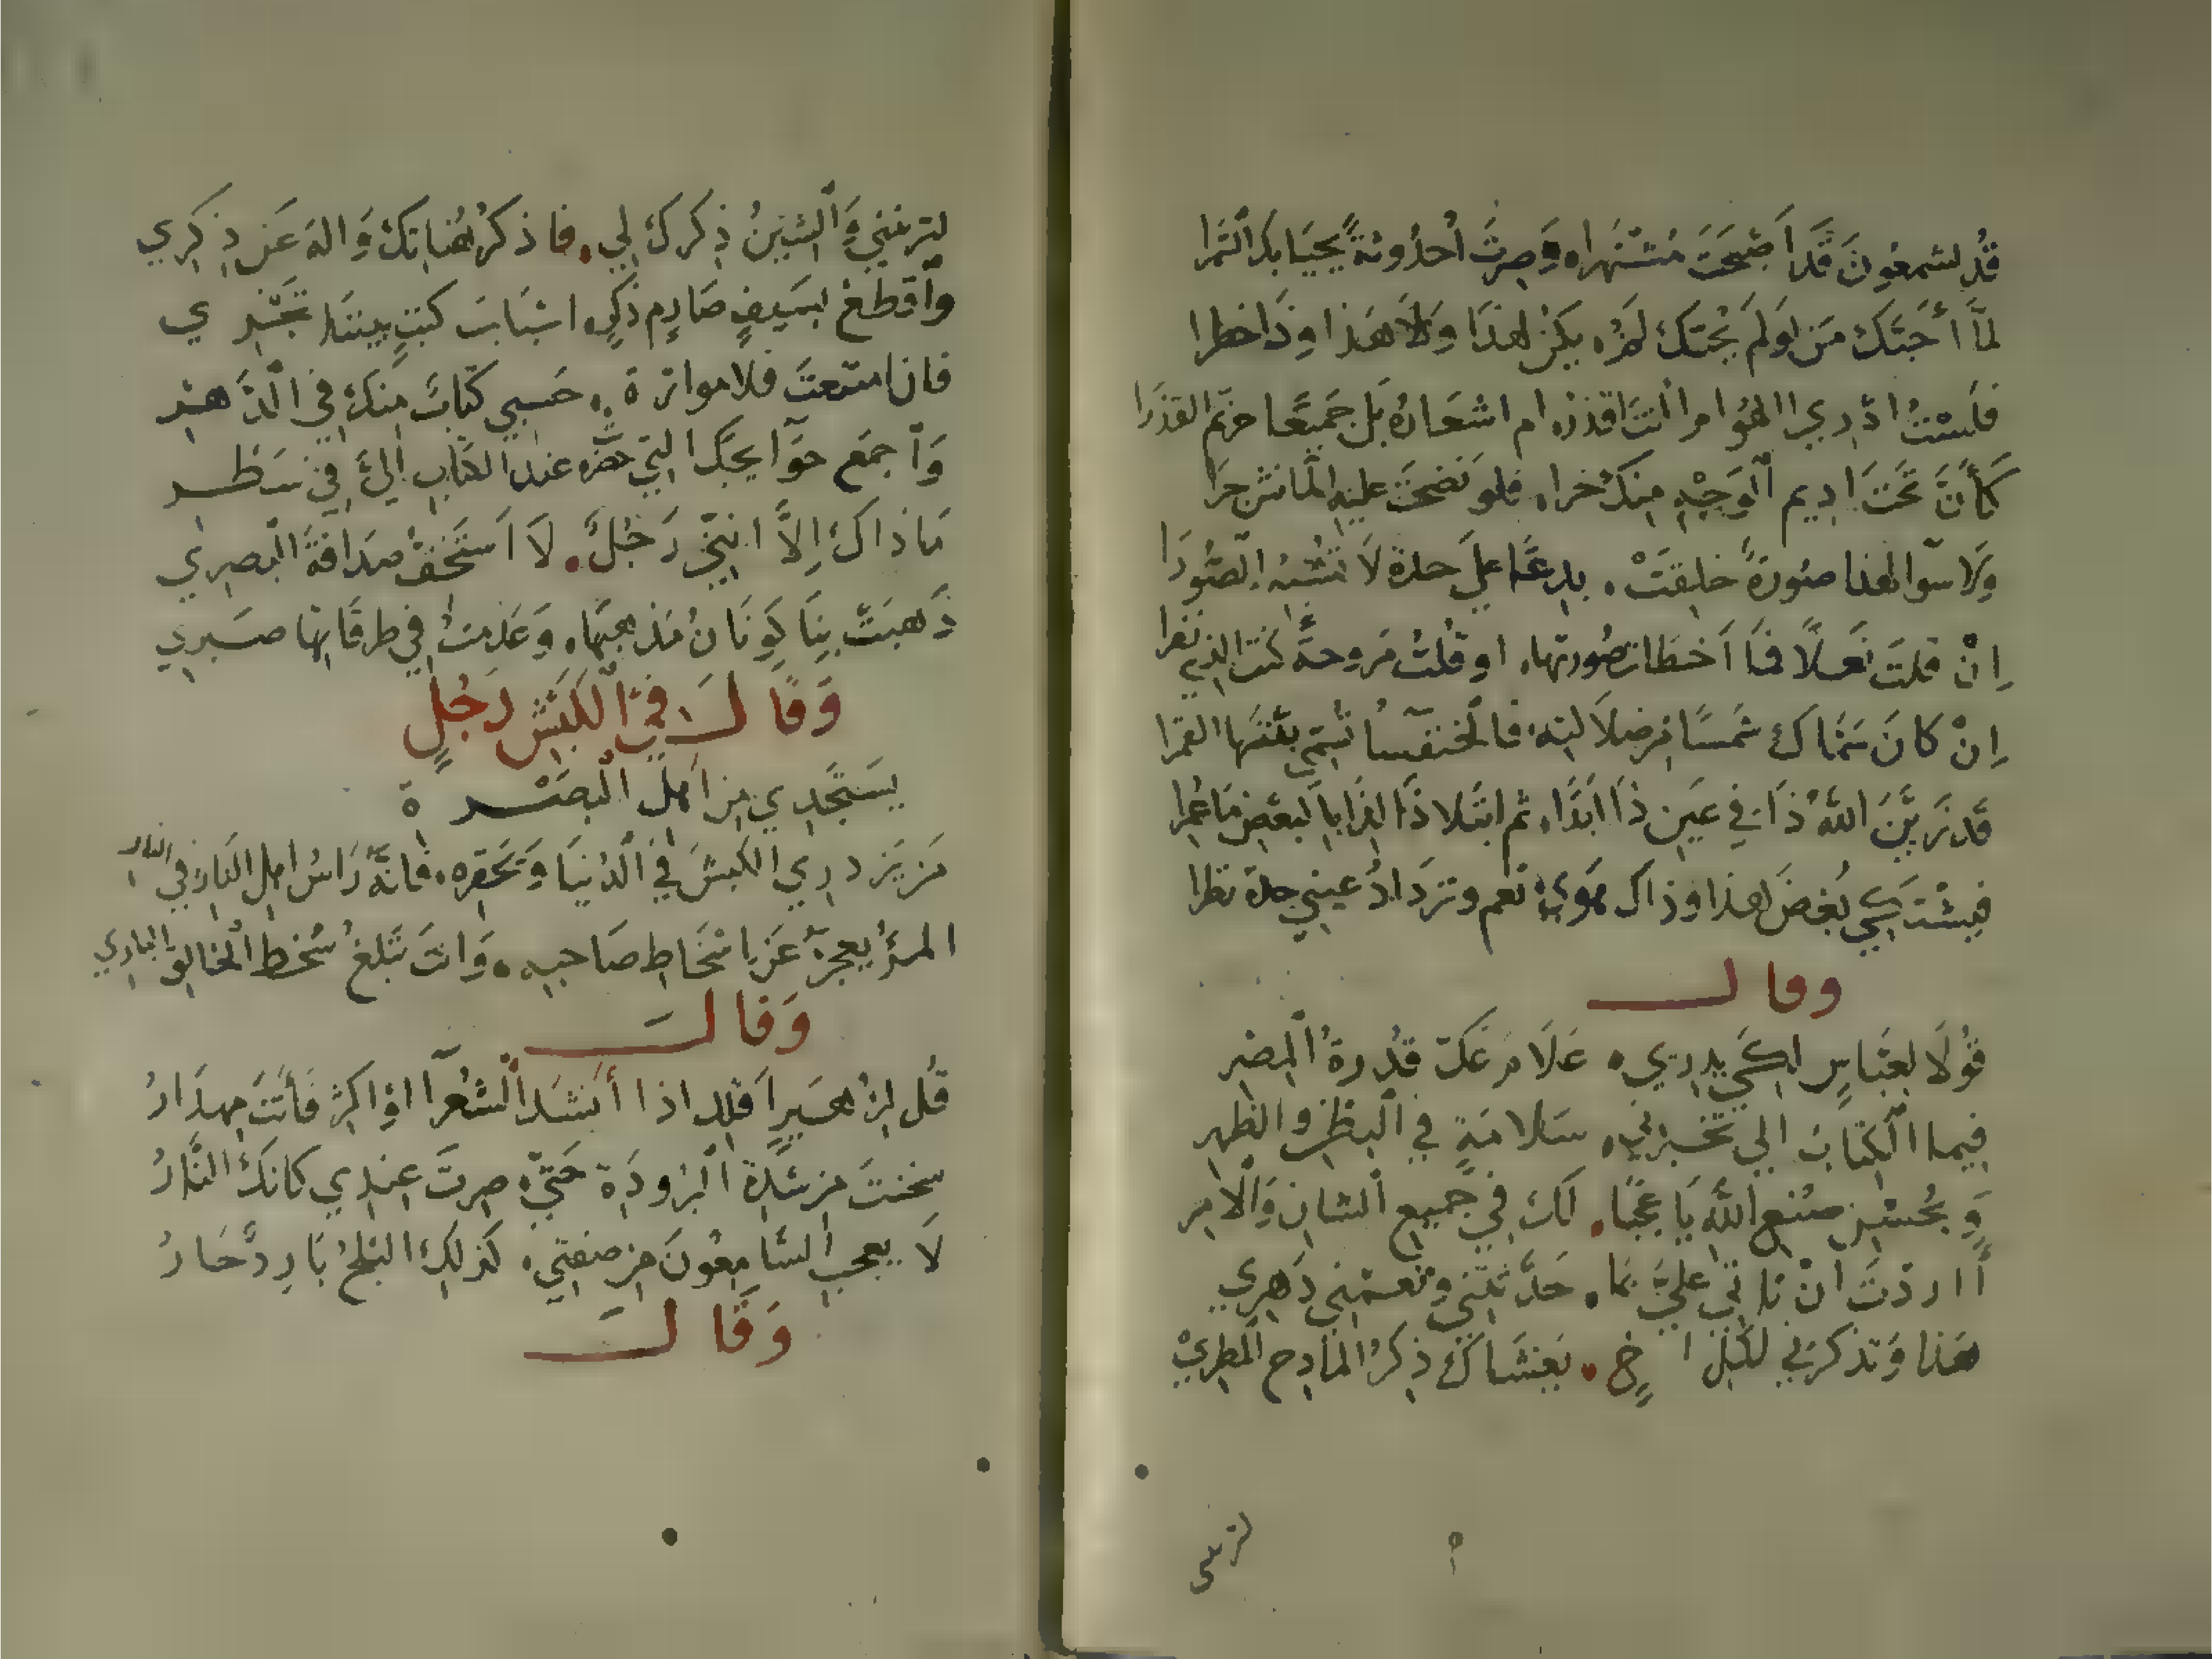 قُل لسمعون قَد اَصبَحتَ مُشْتهرا وَصِرتَ اُحدُوثةً يحيَا بكَ السَّمرا
لمَّا أَجَبتَك مَن لَولم يُجبْكَ له يكن لهذَا وَلا هَذا وذَا خطرا
فلَستُ ادْرِي الهُوَ ام انت اقذره ام اشعَارهُ بَل جَميعًا حزتم القذرَا
كَأَنَّ تَحْتَ اَدِيم اَلوَجْهِ مِنكَ خرا فلو نَضحتَ عليهِ المَا نشرَ جرَا
وَلا سوا لهذا صُورةً خلِقَتْ بدعًا علَى حدة لَا تُشْبهُ الصُّورَا
اِنْ قلتَ نَعلًا فمَا اَخطات صُورتها او قُلتَ مَروحةً كنتَ الذي نفرا
اِنْ كانَ سَمَّاكَ شَمسًا من ضلالتهِ فالخنفسَا تُسَمّي بنتَهَا القمرا
قَد زَيَّنَ اللَّهُ ذَا في عَينِ ذَا اَبَدًا ثم ابتَلا ذَا لذَا بالبعضِ مَا عُمرا
فيشتَكي بُغضَ هذا وذاكَ هَوي نَعم وتزدَادُ عيني حدة نظرا
وقالــــ
قُولَا لِعبَّاسٍ لِكَي يدرِي عَلَامَ عَكّ قدُرةُ المِصْرِ
فِيما الكِتَابُ الي تخبرني سَلامَةٍ في البَظْرِ والظهرِ
وَبحُسْنِ صُنعِ اللَّه يَا عَجَبًا لكَ في جَميعِ الشانِ وَالامرِ
أَارَدْتَ اَنْ تاتي عليَّ بمَا حَدَّثتَني وتَعمّني دَهرِي
هَذا وَتذكرني لكلّ اخٍ يغشَاكَ ذِكرُ المَادِحِ المُطرِيْ
لتزينني وَالشينُ ذِكركَ لي فاذكرُ هُناتكَ وَالهَ عَن ذِكرِي
وَاَقطَعْ بسَيفٍ صَارِم ذَكَرٍ اسْبَابَ كُتبٍ بيننَا تَجْرِي
فان امتنعتَ فلا مواترة حَسبي كتَابٌ مِنكَ في الدَّهْرِ
وَاَجمَع حَوآيجَكَ التي حضرت عند الكتابِ اليَّ في سَطرِ
مَا ذاكَ اِلَّا انَّني رَجُلٌ لَا اَستَخفُّ صَدَاقةَ البَصرِي
ذَهبَتْ بِنَا كوفَانُ مَذهبهَا وَعَدِمتُ في طرقَاتها صَبرِي
وَقَالَ في الكَبش رَجُلٍ
يَستَجدِي من اَهل البَصْرة
مَن يَزدرِي الكبشَ في الدُنيَا وَيَحقرهِ فانَّهُ رَاسُ اهل النار في النار
المرؤ يعجزُ عَن اسْخَاطِ صَاحبهِ وَانتَ تَبلغُ سُخط الخالقِ البارِي
وَقالَــــ
قُل لزُهَيرٍ اَقلِد اذا اَنشدَ الشُعرآ او اكثر فَأنتَ مهذَارُ
سَخنتَ من شدَّةِ البُرُودَةِ حَتَّى صِرتَ عندِي كانكَ النَّارُ
لَا يعجبِ السَّامِعُونَ من صفتي كَذلكَ الثلجُ بَارِدٌ حَارُ
وَقَالَــــ
لتزيني